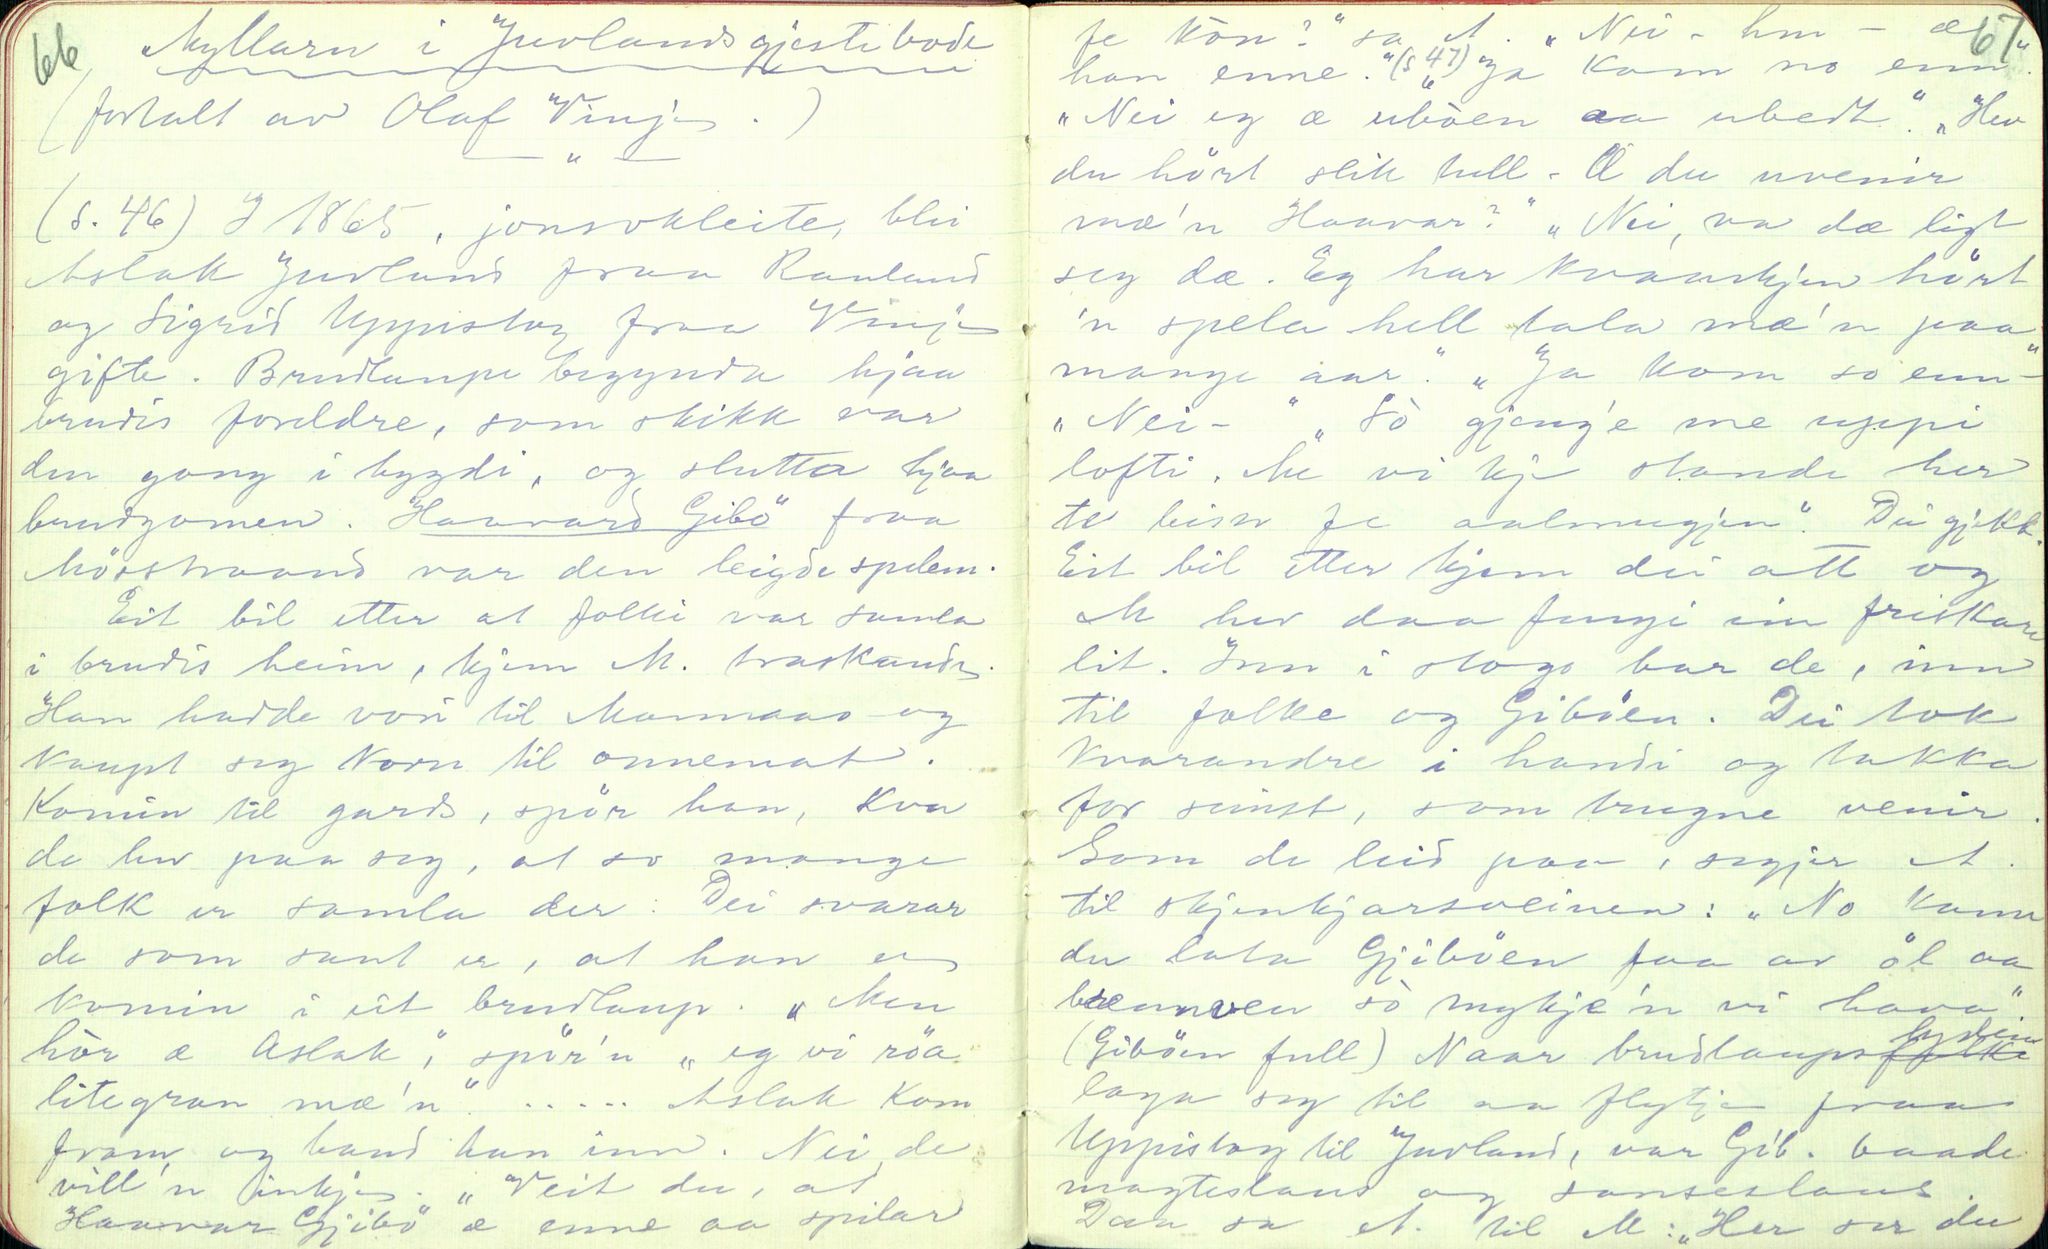 66
Myllarn i Juvlandsgjestibode
(fortalt av Olaf Vinje.)
— " —
(s. 46) I 1865, jonsokleite, blei
Aslak Juvland fraa Rauland
og Sigrid Uppistog fraa Vinje
gifte. Brudlaupe begynda hjaa
brudis foreldre, som skikk var
den gong i bygdi, og slutta hjaa
brudgomen. Haavard Gibö fraa
Mösstraand var den leigde spelem.
Eit bil etter at folki var samla
i brudis heim, kjem M. traskande.
Han hadde vori til Marnaas og
kaupt seg korn til onnemat.
Komin til gards, spör han, kva
de hev paa seg, at so mange
folk er samla der. Dei svarar
de som sant er, at han er
komin i eit brudlaup. „Men
hòr æ Aslak", spör'n „eg vi röa
litegran mæ'n" ..... Aslak kom
fram og baud han inn. Nei de
vill'n inkje. „Veit du, at
Haavar Gjibö æ enne aa spilar
67
fe kòn?" sa A. „Nei - hm - æ
han enne." (s 47) „Ja kom no enn."
„Nei eg æ uböen aa ubedt." „Hev
du hört slik tull - Æ du uvenir
mæ'n Haavar?" „Nei, va dæ ligt
seg dæ. Eg har kvaarkjen hört
'n spela hell tala mæ'n paa
mange aar." „Ja kom so enn -"
„Nei -" „Sò gjeng'e me uppi
lofti. Me vi kje stande her
te bisn fe aalmugjen". Dei gjekk.
Eit bil etter kjem dei att og
M hev daa fengi ein friskare
lit. Inn i stogo bar de, inn
til folke og Giböen. Dei tok
kvarandre i handi og takka
for seinst, som trugne venir.
Som de leid paa, segjer A.
til skjenkjarsveinen: „No kann
du lata Gjiböen faa av öl aa
brennven sò mykje'n vi hava"
(Giböen full) Naar brudlaupsfolki lydein
laga seg til aa flytje fraa
Uppistog til Juvland, var Gib. baade
magteslaus og sanseslaus.
Daa sa A. til M: „Her ser du